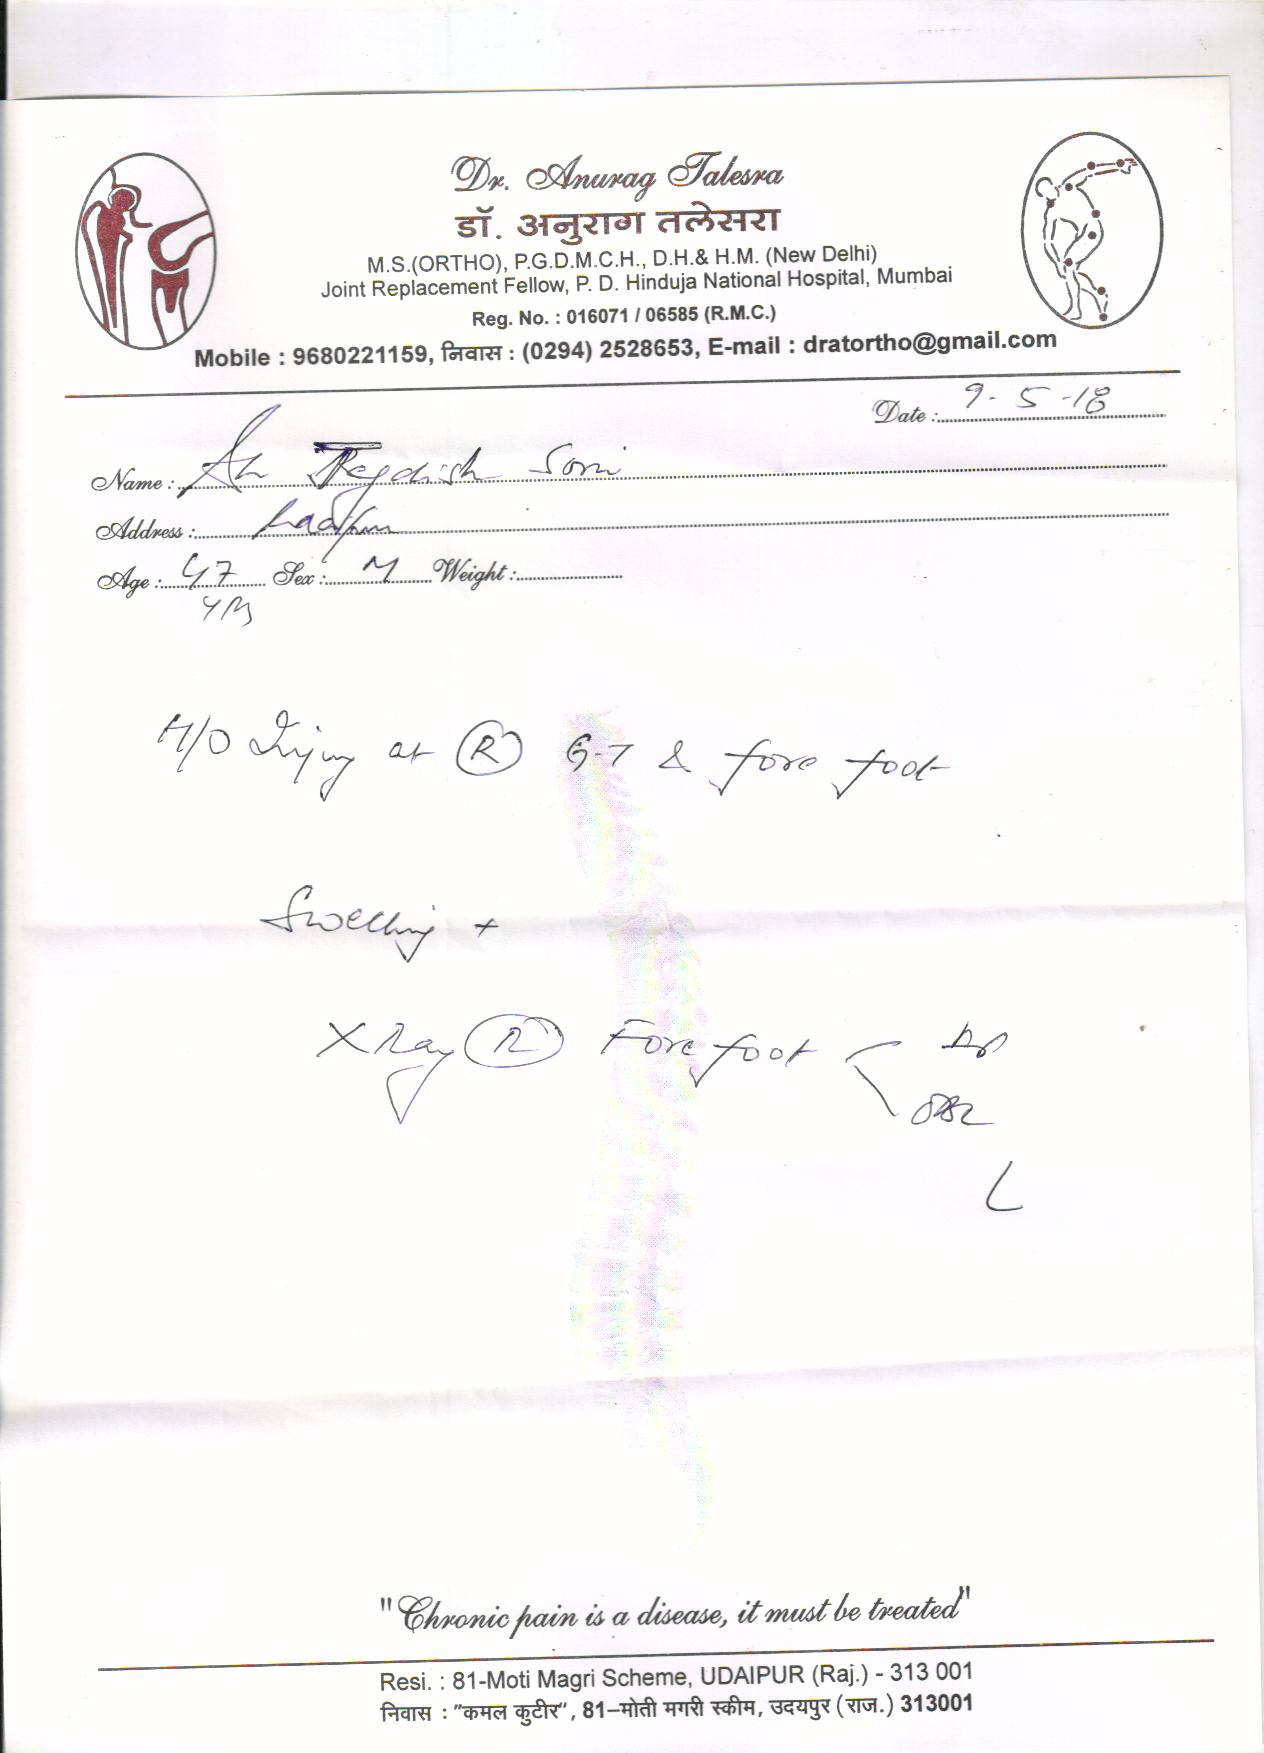 Dr. Anurag Talesra
डॉ. अनुराग तलेसरा
M.S.(ORTHO), P.G.D.M.C.H., D.H.& H.M. (New Delhi)
Joint Replacement Fellow, P. D. Hinduja National Hospital, Mumbai
Reg. No. : 016071 / 06585 (R.M.C.)
Mobile : 9680221159, निवास : (0294) 2528653, E-mail : dratortho@gmail.com
Date : 9-5-18
Name : Jagdish Soni
Address :
Age : 47 Sex : M Weight :
H/O Injury at R G-T & fore foot
Swelling +
X Ray R Fore foot AP
L
"Chronic pain is a disease, it must be treated"
Resi. : 81-Moti Magri Scheme, UDAIPUR (Raj.) - 313 001
निवास : "कमल कुटीर", 81–मोती मगरी स्कीम, उदयपुर (राज.) 313001